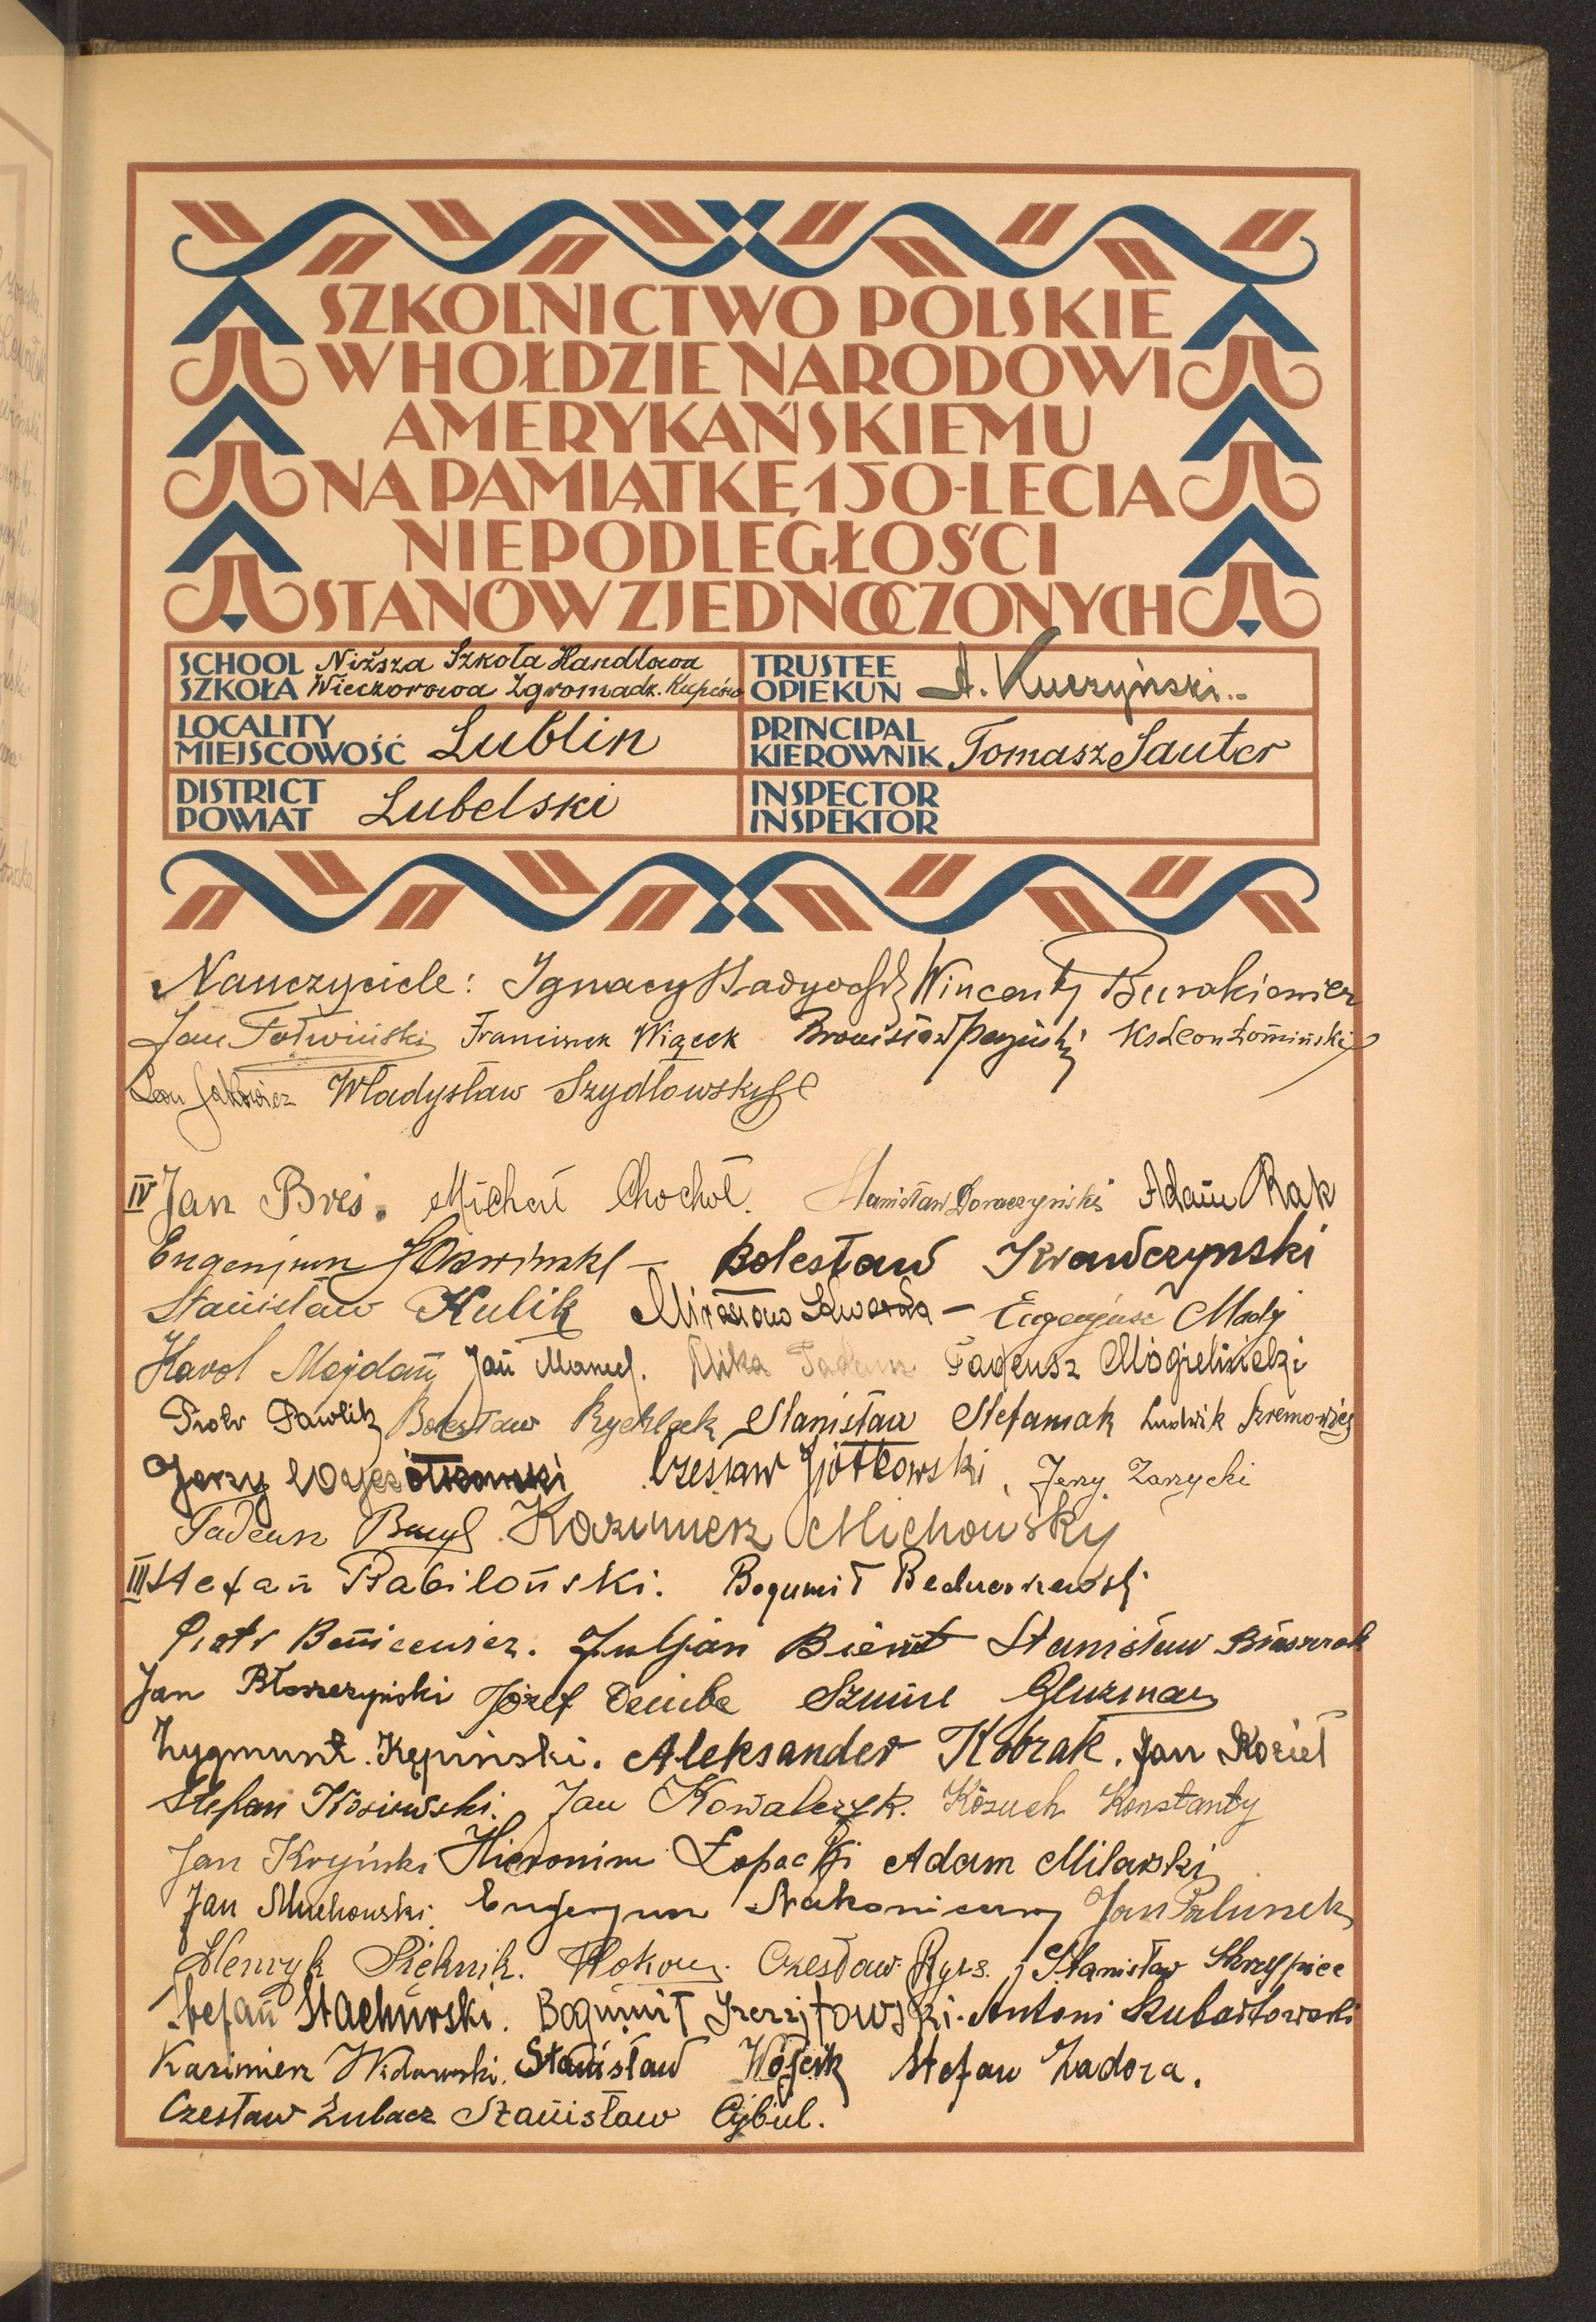 SZKOLNICTWO POLSKIE
W HOŁDZIE NARODOWI
AMERYKAŃSKIEMU
NA PAMIĄTKĘ 150-LECIA
NIEPODLEGŁOŚCI
STANÓW ZJEDNOCZONYCH
SCHOOL Niższa Szkoła Handlowa
SZKOŁA Wieczorowa Zgromadz. Kupców
TRUSTEE
OPIEKUN A. Kuczyński
LOCALITY
MIEJSCOWOŚĆ Lublin
PRINCIPAL
KIEROWNIK Tomasz Sauter
DISTRICT
POWIAT Lubelski
INSPECTOR
INSPEKTOR
Nauczyciele: Ignacy Wincenty Burakiewicz
Jan Fotwiński Franciszek Wiącek Bronisław Ks Leon Łomiński
Leon Władysław Szydłowski
IV Jan Breś. Michał Chochoł. Stanisław Doraczyński Adam Rak
Eugenjusz Bolesław Krawczynski
Stanisław Kulik Mirosław Eugenjusz Mady
Karol Majdań Jan Mamej. Mika Tadeusz Tadeusz Mogielnicki
Piotr Pawlik Bolesław Rychlick Stanisław Stefaniak Ludwik Szremowicz
Jerzy Czesław Jerzy Zarzycki
Tadeusz Kazimierz Michowsky
III Stefan Babiloński. Bogumił
Piotr Benicewicz. Juljan Bieńt Stanisław Błaszczak
Jan Błaszczyński Józef Dziuba Szmul Gluzman
Zygmunt Kępiński. Aleksander Kobzak. Jan Kozieł
Stefan Kosiewski. Jan Kowalczyk. Kozuch Konstanty
Jan Kryński Hieronim Łopacki Adam Milarski
Jan Muchowski. Eugenjusz Nakonieczny Jan Palunek
Henryk Piéknik. Czesław Ryss. Stanisław Skrzypiec
Stefan Stachurski. Bogumił Antoni Szubartowski
Kazimierz Widawski. Stanisław Wójcik Stefan Zadora.
Czesław Żubacz Stanisław Cybul.